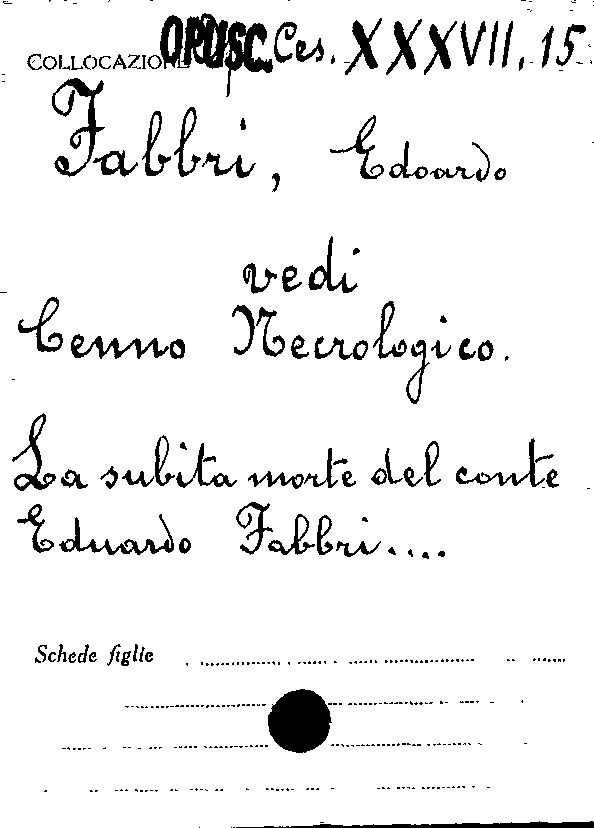 COLLOCAZIONE OPUSC. Ces. XXXVII. 15
Fabbri, Edoardo
vedi
Cenno Necrologico.
La subita morte del conte
Eduardo Fabbri....
Schede figlie